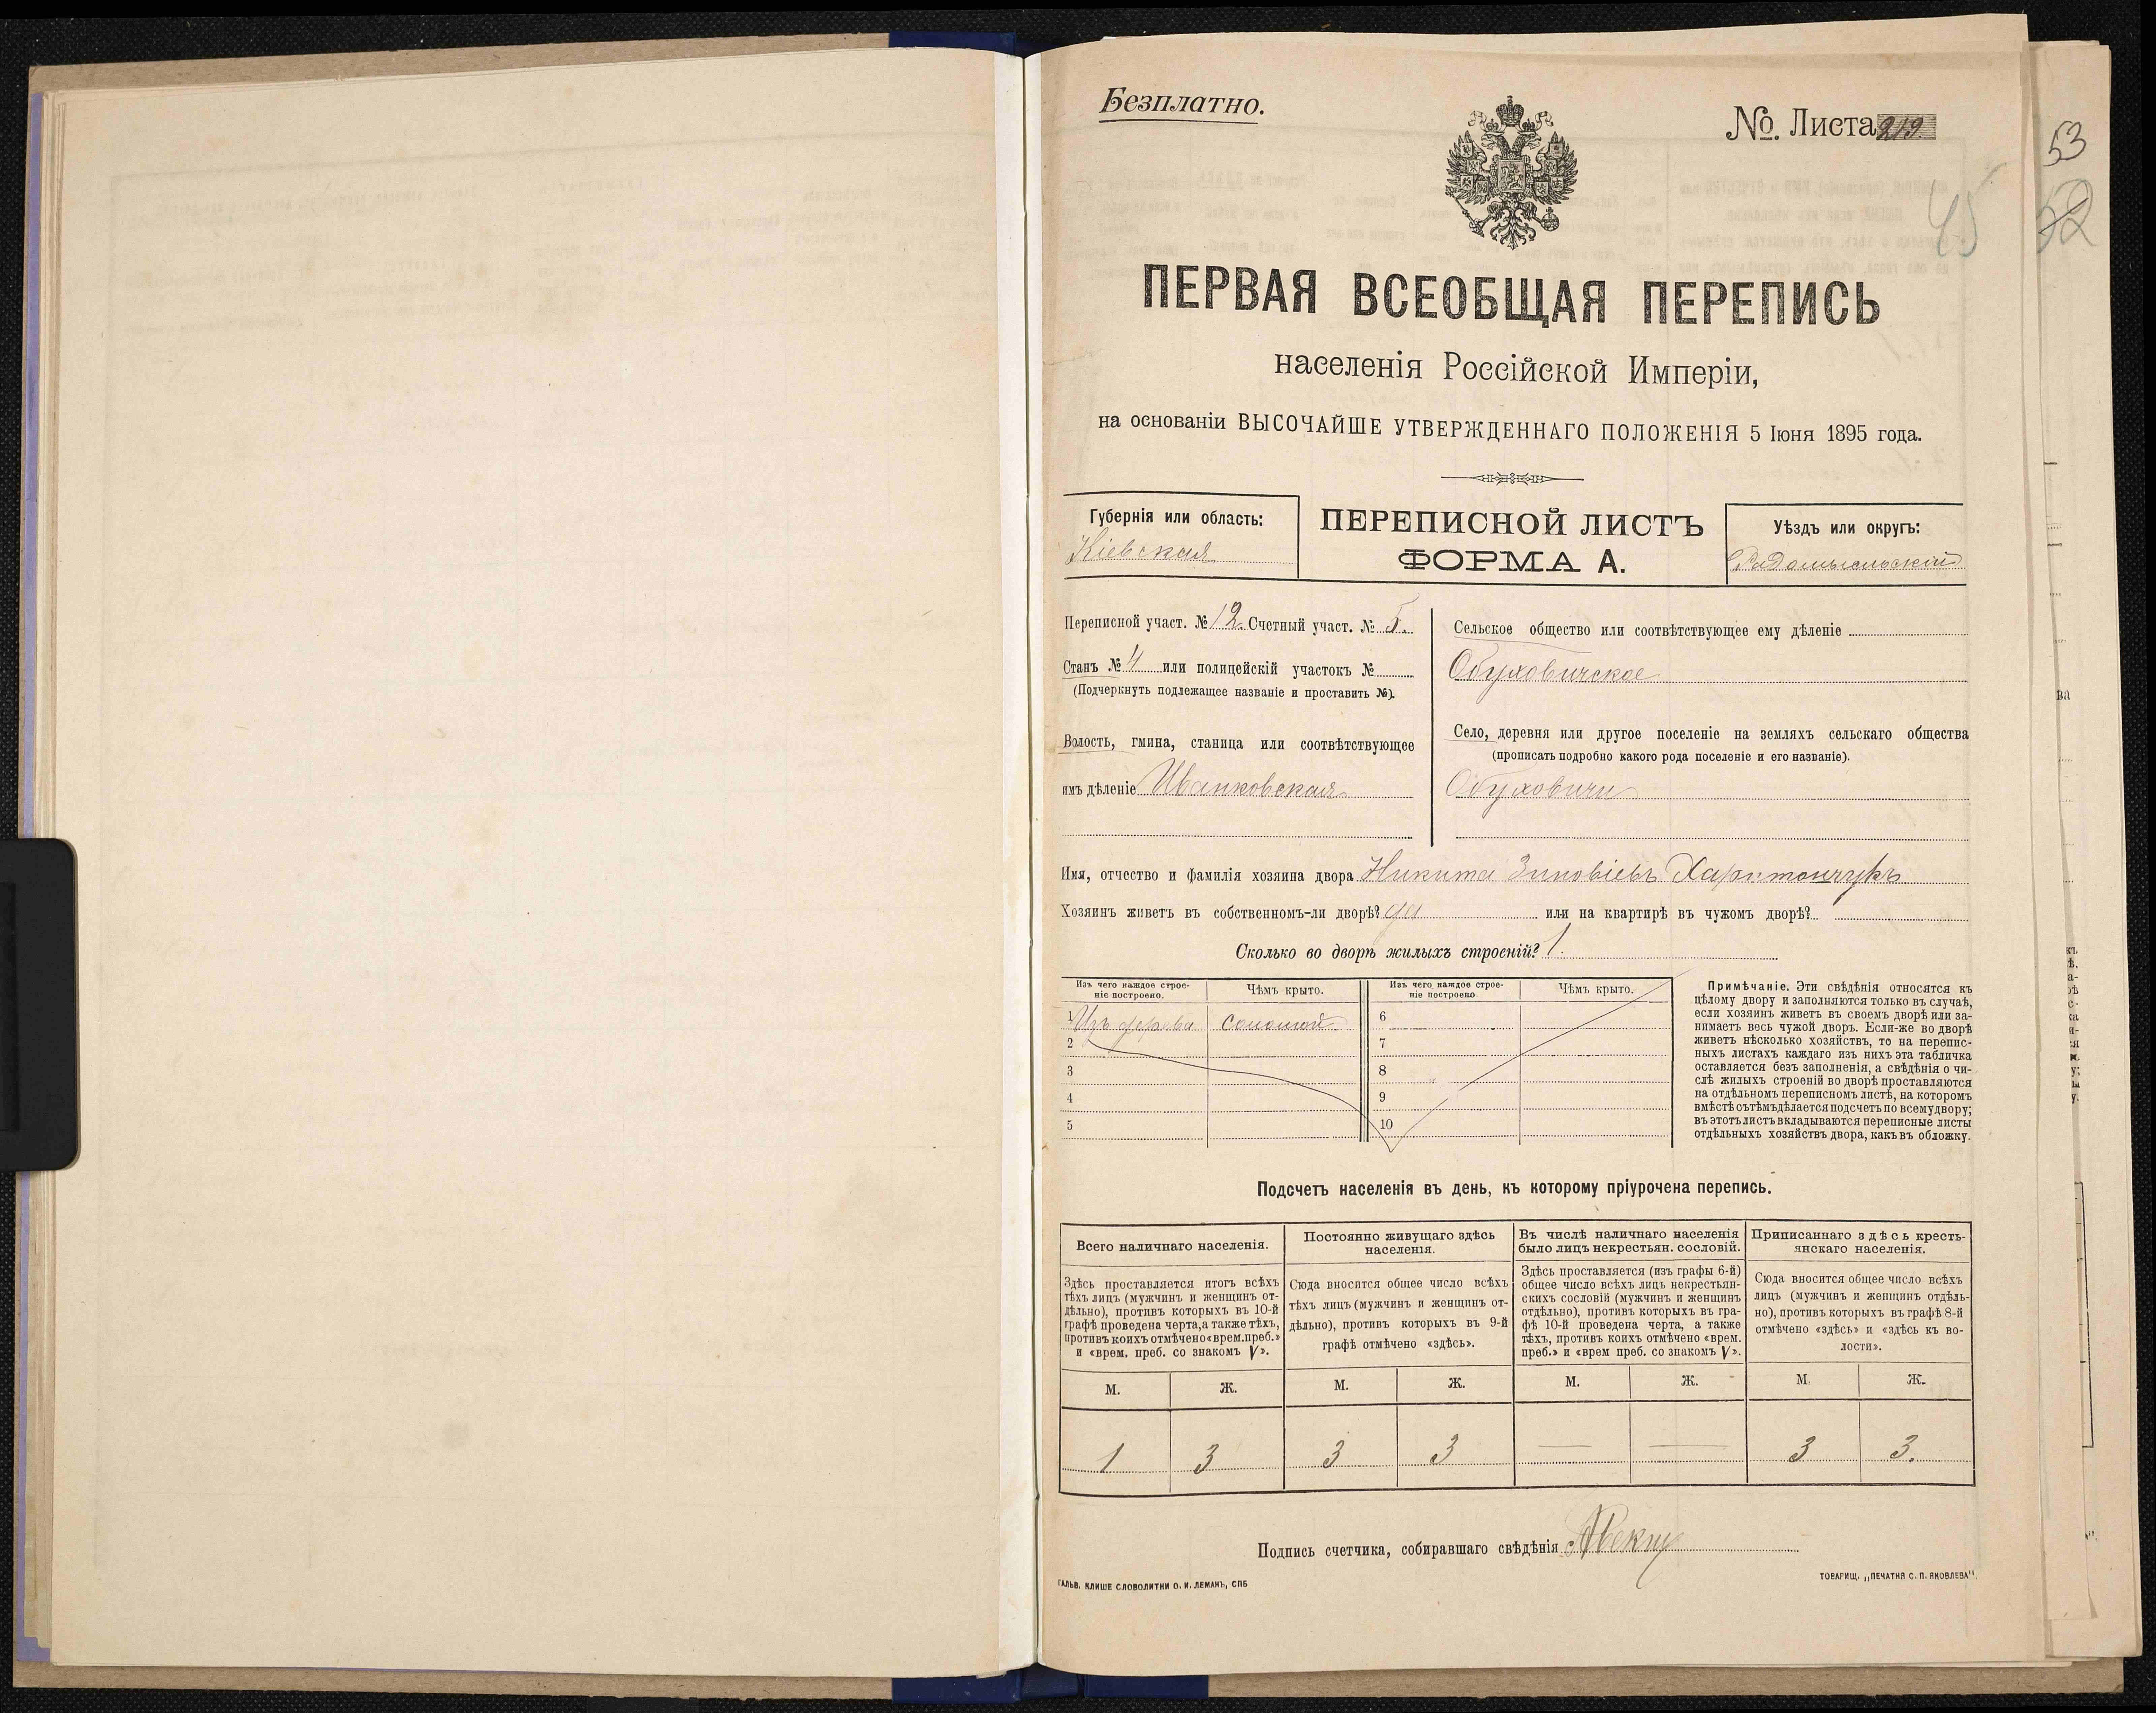 Безплатно.
№. Листа 219.
53
45
52
ПЕРВАЯ ВСЕОБЩАЯ ПЕРЕПИСЬ
населенія Россійской Имперіи,
на основаніи ВЫСОЧАЙШЕ УТВЕРЖДЕННАГО ПОЛОЖЕНІЯ 5 Іюня 1895 года.
Губернія или область:
Кіевская
ПЕРЕПИСНОЙ ЛИСТЪ
ФОРМА А.
Уѣздъ или округъ:
Радомысльскій
Переписной участ. № 12. Счетный участ. № 5.
Станъ № 4 или полицейскій участокъ №
(Подчеркнуть подлежащее названіе и проставить №).
Волость, гмина, станица или соотвѣтствующее
имъ дѣленіе Иванковская
Сельское общество или соотвѣтствующее ему дѣленіе
Обуховичское
Село, деревня или другое поселеніе на земляхъ сельскаго общества
(прописать подробно какого рода поселеніе и его названіе).
Обуховичи
Имя, отчество и фамилія хозяина двора Никита Зиновіевъ Харитончукъ
Хозяинъ живетъ въ собственномъ-ли дворѣ? да или на квартирѣ въ чужомъ дворѣ?
Сколько во дворѣ жилыхъ строеній? 1.
Изъ чего каждое строе-
ніе построено.
Чѣмъ крыто.
Изъ чего каждое строе-
ніе построено
Чѣмъ крыто.
1 Изъ дерева соломой 6
2 7
3 8
4 9
5 10
Примѣчаніе. Эти свѣдѣнія относятся къ
цѣлому двору и заполняются только въ случаѣ,
если хозяинъ живетъ въ своемъ дворѣ или за-
нимаетъ весь чужой дворъ. Если-же во дворѣ
живетъ нѣсколько хозяйствъ, то на перепис-
ныхъ листахъ каждаго изъ нихъ эта табличка
оставляется безъ заполненія, а свѣдѣнія о чи-
слѣ жилыхъ строеній во дворѣ проставляются
на отдѣльномъ переписномъ листѣ, на которомъ
вмѣстѣ съ тѣмъ дѣлается подсчетъ по всему двору;
въ этотъ листъ вкладываются переписные листы
отдѣльныхъ хозяйствъ двора, какъ въ обложку.
Подсчетъ населенія въ день, къ которому пріурочена перепись.
Всего наличнаго населенія.
Здѣсь проставляется итогъ всѣхъ
тѣхъ лицъ (мужчинъ и женщинъ от-
дѣльно), противъ которыхъ въ 10-й
графѣ проведена черта, а также тѣхъ,
противъ коихъ отмѣчено «врем. преб.»
и «врем. преб. со знакомъ V».
Постоянно живущаго здѣсь
населенія.
Сюда вносится общее число всѣхъ
тѣхъ лицъ (мужчинъ и женщинъ от-
дѣльно), противъ которыхъ въ 9-й
графѣ отмѣчено «здѣсь».
Въ числѣ наличнаго населенія
было лицъ некрестьян. сословій.
Здѣсь проставляется (изъ графы 6-й)
общее число всѣхъ лицъ некрестьян-
скихъ сословій (мужчинъ и женщинъ
отдѣльно), противъ которыхъ въ гра-
фѣ 10-й проведена черта, а также
тѣхъ, противъ коихъ отмѣчено «врем.
преб.» и «врем преб. со знакомъ V».
Приписаннаго здѣсь кресть-
янскаго населенія.
Сюда вносится общее число всѣхъ
лицъ (мужчинъ и женщинъ отдѣль-
но), противъ которыхъ въ графѣ 8-й
отмѣчено «здѣсь» и «здѣсь къ во-
лости».
М. Ж. М. Ж. М. Ж. М. Ж.
1 3 3 3 — — 3 3.
Подпись счетчика, собиравшаго свѣдѣнія
ГАЛЬВ. КЛИШЕ СЛОВОЛИТНИ О. И. ЛЕМАНЪ, СПБ
ТОВАРИЩ. „ПЕЧАТНЯ С. П. ЯКОВЛЕВА".